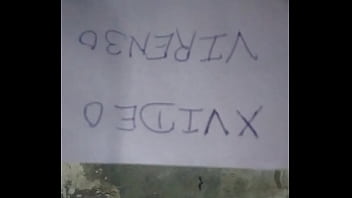 XVIDEO
VIREN30